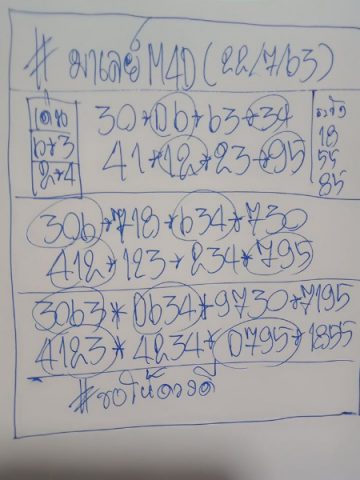 # มาเลย์ M4D (22/7/63)
เด่น
6*3
2*4
30*06*63*34
41*12*23*95
ระวัง
18
55
85
306*718*634*730
412*123*234*795
3063*0634*9730*7195
4123*4234*0795*1855
#ขอให้ดวงดี